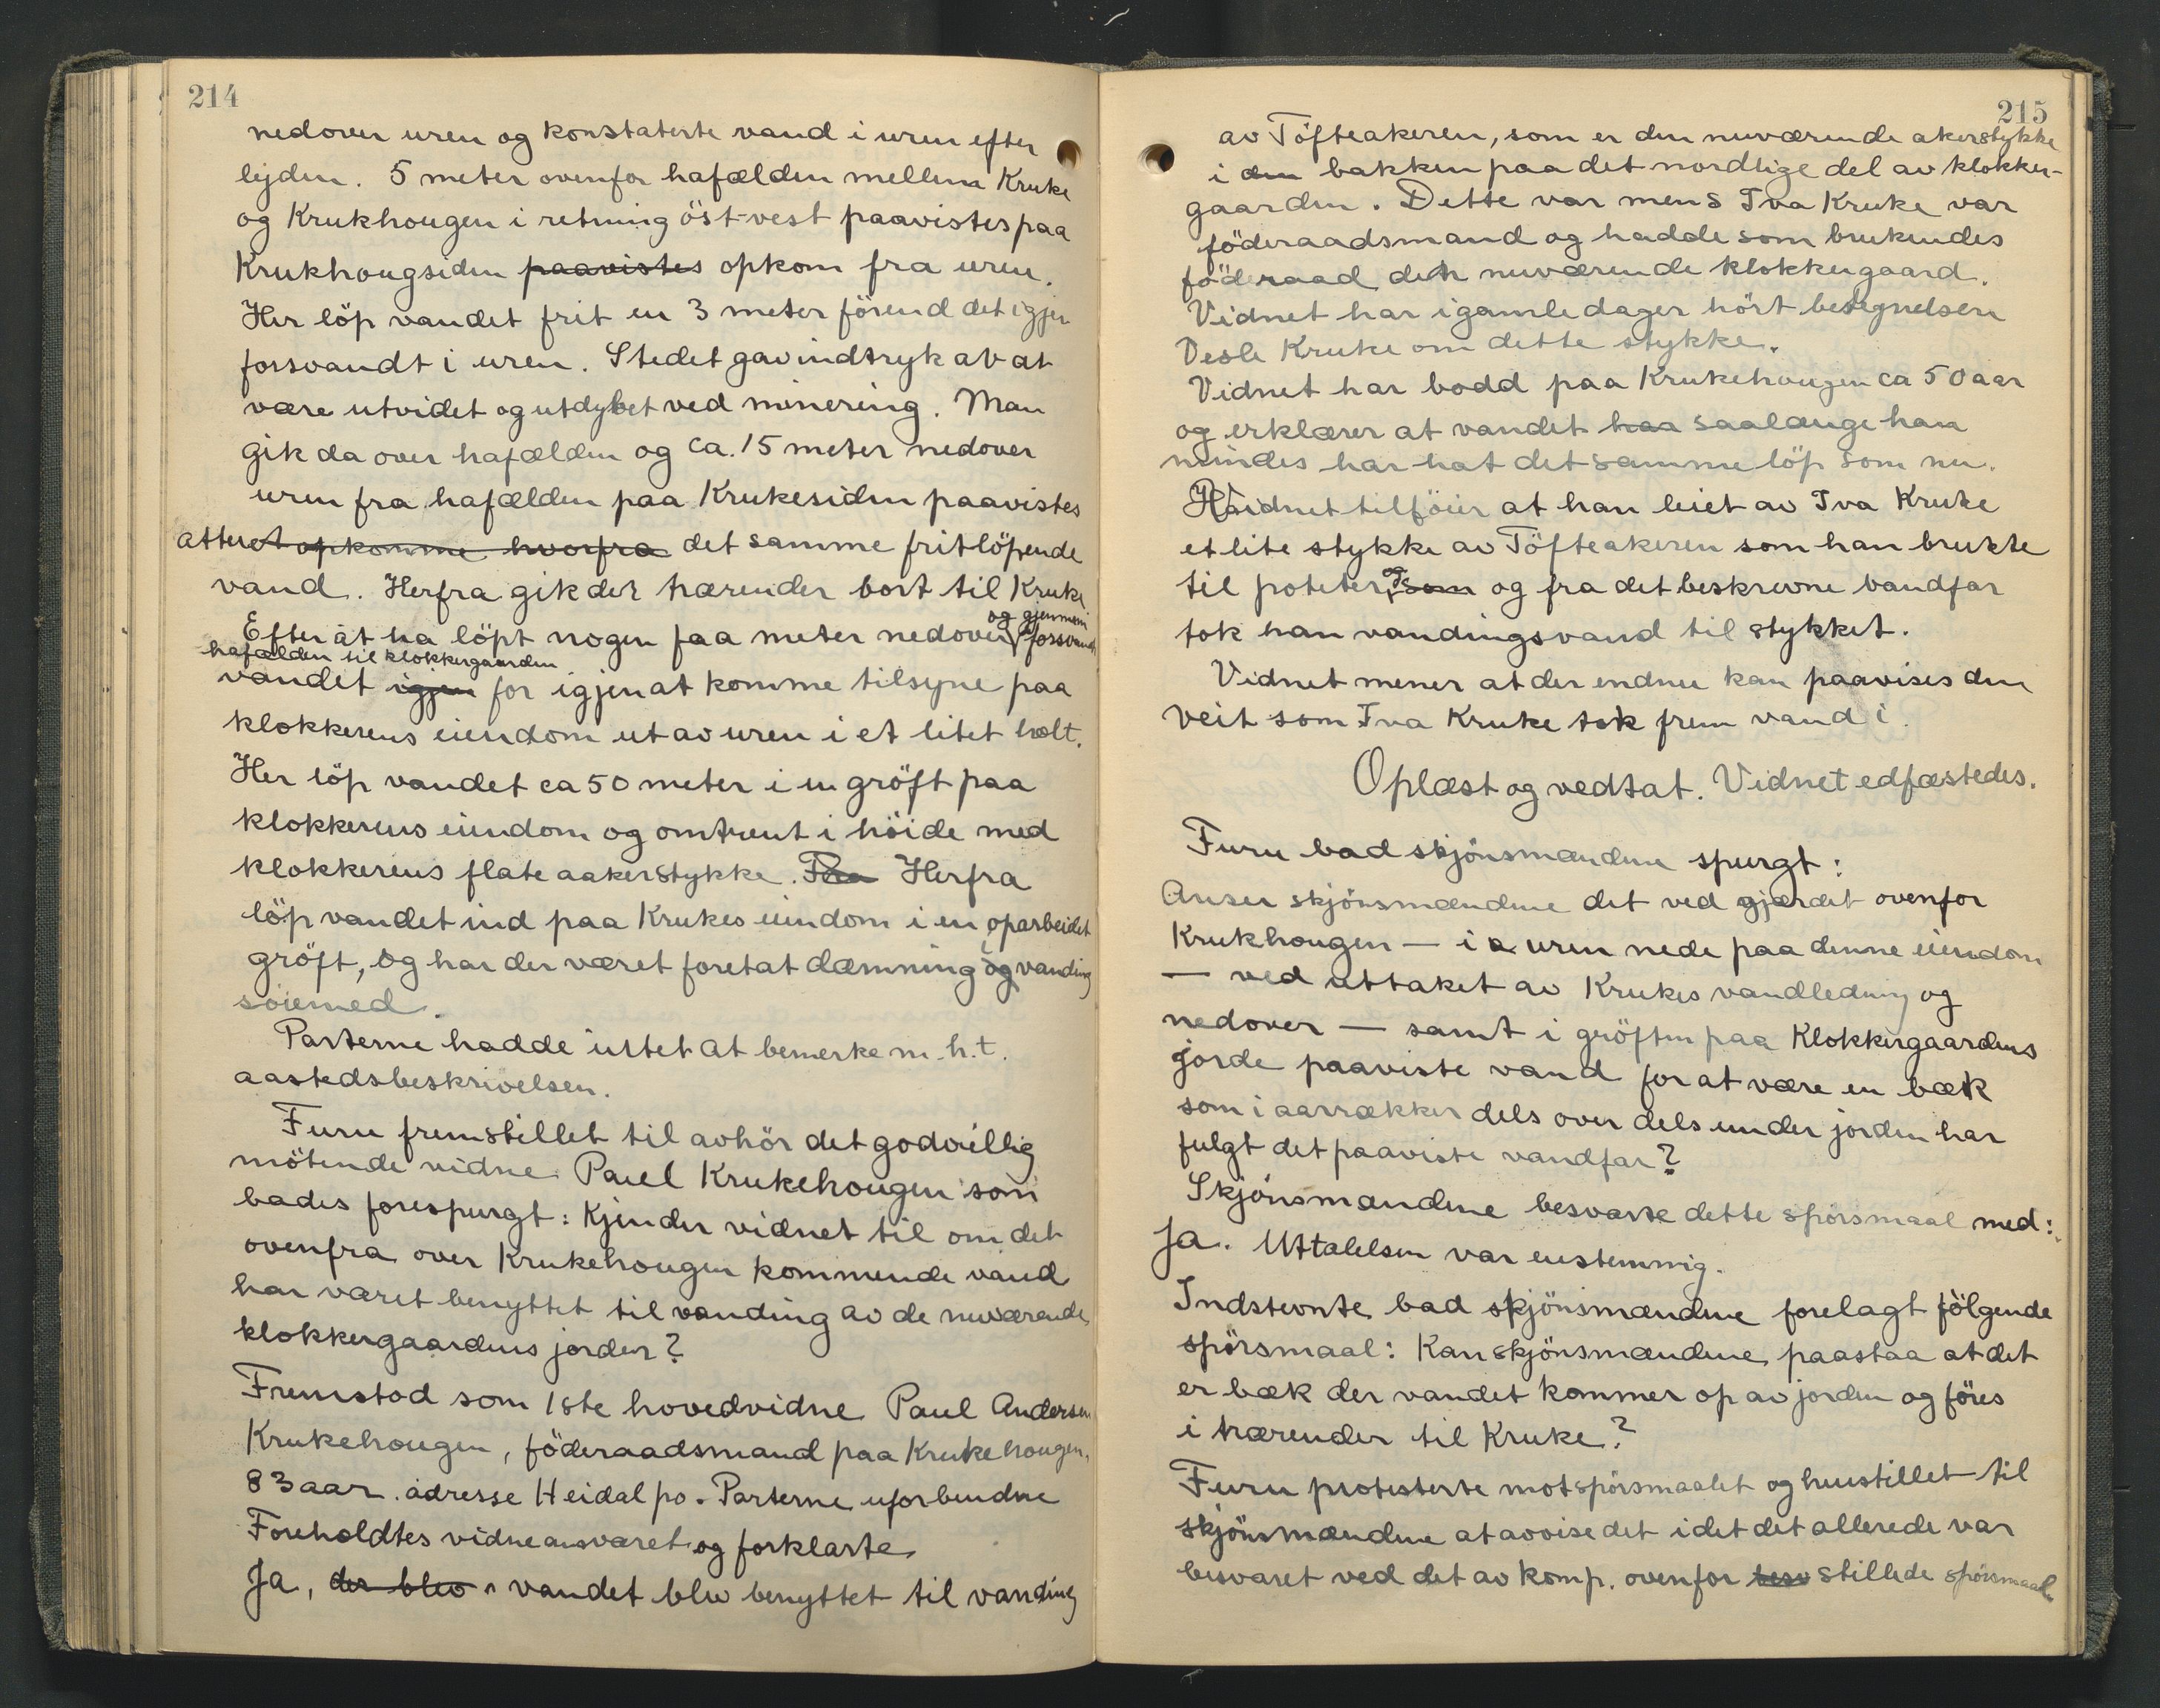 214
nedover uren og konstaterte vand i uren efter
lyden. 5 meter ovenfor hafælden mellem Kruke
og Krukhougen i retning öst-vest paavistes paa
Krukhougsiden paavistes opkom fra uren.
Her löp vandet frit en 3 meter förend det igjen
forsvandt i uren. Stedet gav indtryk av at
være utvidet og utdybet ved minering. Man
gik da over hafælden og ca. 15 meter nedover
uren fra hafælden paa Krukesiden paavistes
atter et opkomme hvorfra det samme fritlöpende
vand. Herfra gik det trærender bort til Kruke
og gjennem
Efter at ha löpt nogen faa meter nedover forsvandt
hafælden til klokkergaarden
vandet igjen for igjen at komme tilsyne paa
klokkerens eiendom ut av uren i et litet holt.
Her löp vandet ca 50 meter i en gröft paa
klokkerens eiendom og omtrent i höide med
klokkerens flate aakerstykke. Paa Herfra
löp vandet ind paa Krukes eiendom i en oparbeidet
gröft, og har der været foretat dæmning i og vanding
söiemed.
Parterne hadde intet at bemerke m.h.t.
aastedsbeskrivelsen.
Furu fremstillet til avhör det godvillig
mötende vidne Paul Krukehougen som
bades forespurgt: Kjender vidnet til om det
ovenfra over Krukehougen kommende vand
har været benyttet til vanding av de nuværende
klokkergaardens jorder?
Fremstod som 1ste hovedvidne Paul Andersen
Krukehougen, föderaadsmand paa Krukehougen,
83 aar. adresse Heidal po. Parterne uforbundne
Foreholdtes vidneansvaret og forklarte
Ja, der blev vandet blev benyttet til vanding
215
av Töfteakeren, som er den nuværende akerstykke
i den bakken paa det nordlige del av klokker-
gaarden. Dette var mens Iva Kruke var
föderaadsmand og hadde som brukendes
föderaad den nuværende klokkergaard.
Vidnet har i gamle dager hört betegnelsen
Vesle Kruke om dette stykke.
Vidnet har bodd paa Krukehougen ca 50 aar
og erklærer at vandet haa saalænge han
mindes har hat det samme löp som nu.
Vidnet tilföier at han leiet av Iva Kruke
et lite stykke av Töfteakeren som han brukte
til poteter, og som og fra det beskrevne vandfar
tok han vandingsvand til stykket.
Vidnet mener at der endnu kan paavises den
veit som Iva Kruke tok frem vand i.
Oplæst og vedtat. Vidnet edfæstedes.
Furu bad skjönsmændene spurgt:
Anser skjönsmændene det ved gjærdet ovenfor
Krukhougen — i a uren nede paa denne eiendom
— ved uttaket av Krukes vandledning og
nedover — samt i gröften paa Klokkergaardens
jorde paaviste vand for at være en bæk
som i aarrækker dels over dels under jorden har
fulgt det paaviste vandfar?
Skjönsmændene besvarte dette spörsmaal med:
Ja. Uttalelsen var enstemmig.
Indstevnte bad skjönsmændene forelagt fölgende
spörsmaal: Kan skjönsmændene paastaa at det
er bæk der vandet kommer op av jorden og föres
i trærender til Kruke?
Furu protesterte mot spörsmaalet og henstillet til
skjönsmændene at avvise det idet det allerede var
besvaret ved det av komp. ovenfor besv stillede spörsmaal.